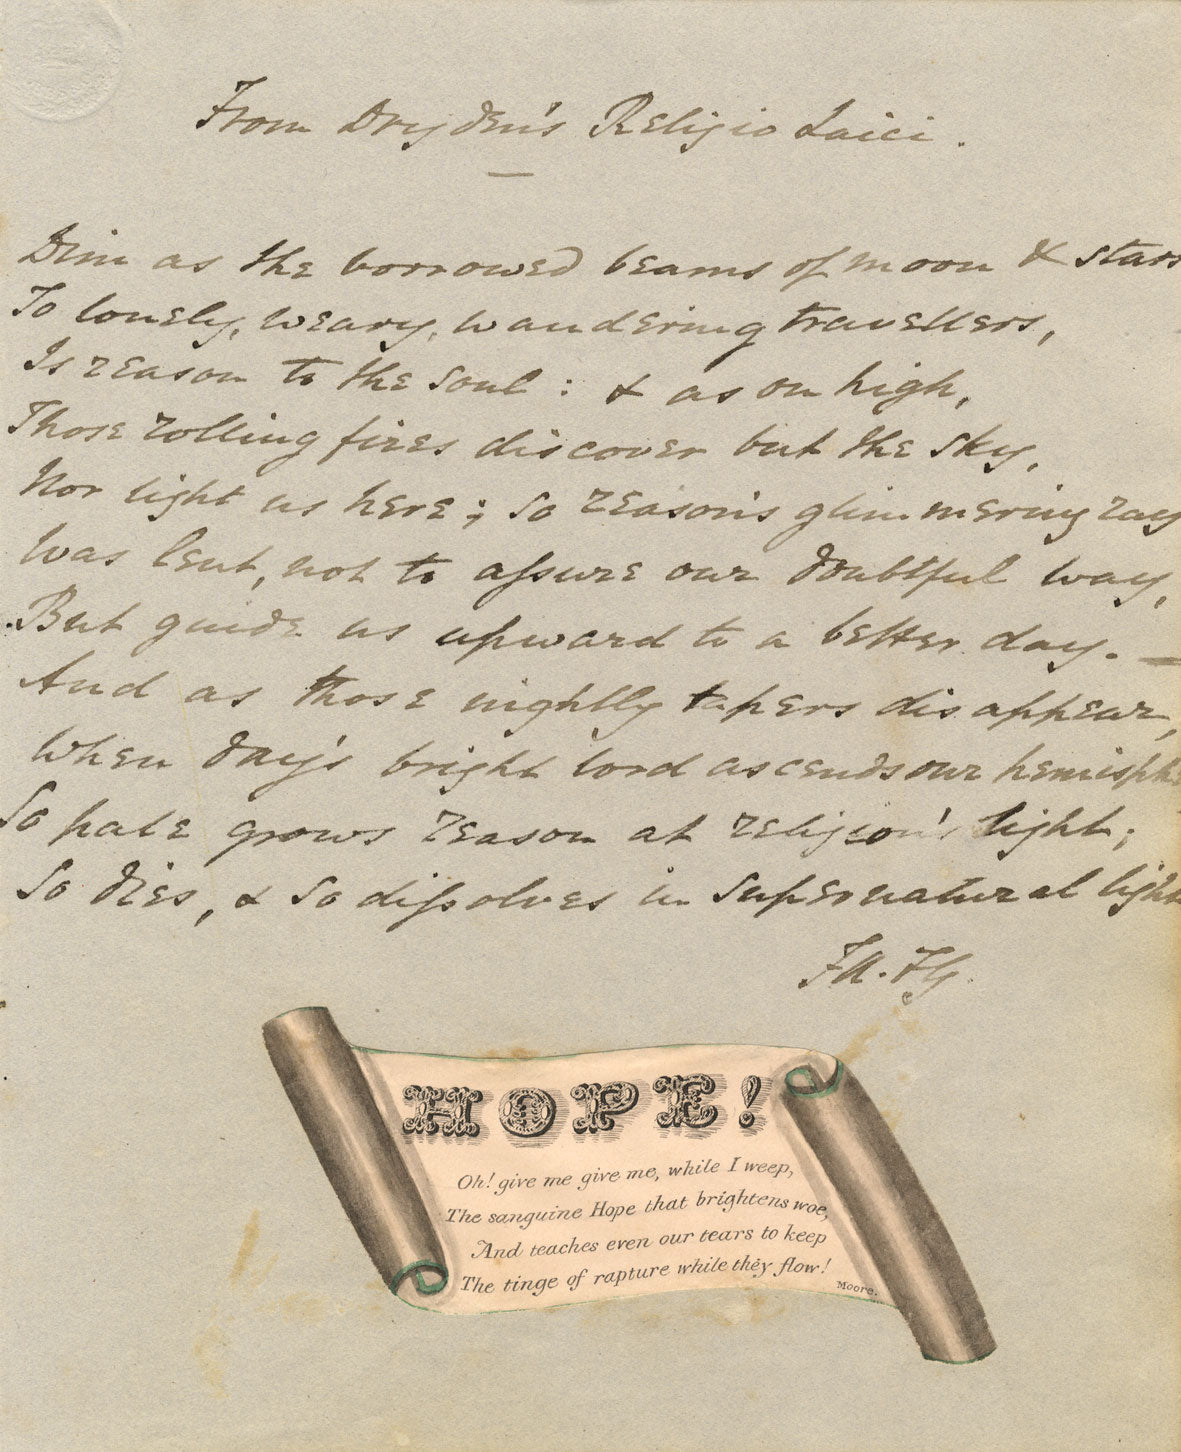 From Dryden's Religio Laici.
Dim as the borrowed beams of moon & stars
To lonely, weary, wandering travellers,
Is reason to the soul: & as on high,
Those rolling fires discover but the sky,
Nor light us here; so reason's glimmering ray
Was lent, not to assure our doubtful way,
But guide us upward to a better day. —
And as those nightly tapers disappear,
When day's bright lord ascends our hemisphe
So pale grows reason at religion's light;
So dies, & so dissolves in supernatural light
FA. FG.
HOPE!
Oh! give me give me, while I weep,
The sanguine Hope that brightens woe,
And teaches even our tears to keep
The tinge of rapture while they flow!
Moore.